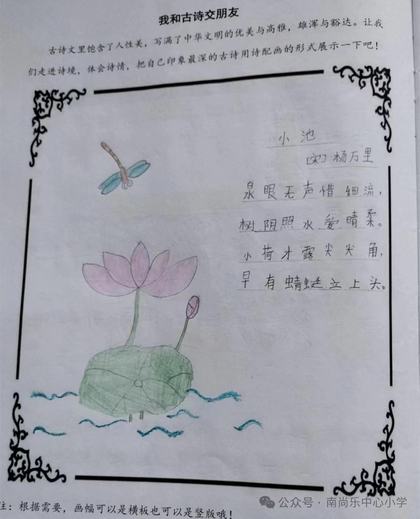 我和古诗交朋友
古诗文里饱含了人性美，写满了中华文明的优美与高雅，雄浑与豁达。让我
们走进诗境，体会诗情，把自己印象最深的古诗用诗配画的形式展示一下吧！
小池
杨万里
泉眼无声惜细流，
树阴照水爱晴柔。
小荷才露尖尖角，
早有蜻蜓立上头。
注：根据需要，画幅可以是横板也可以是竖版哦！
公众号·南尚乐中心小学